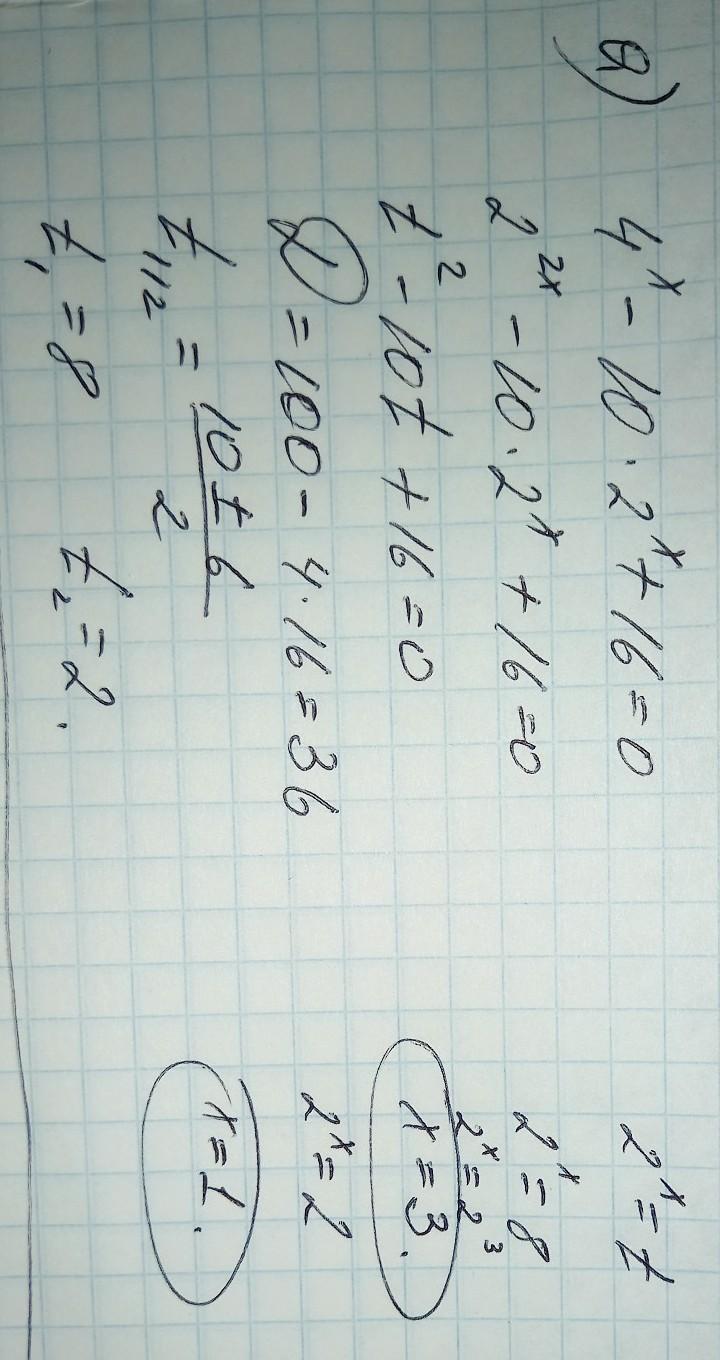 a) 4^x - 10·2^x + 16 = 0
2^2x - 10·2^x + 16 = 0
t^2 - 10t + 16 = 0
D = 100 - 4·16 = 36
t_1,2 = (10 ± 6)/2
t_1 = 8 t_2 = 2.
2^x = t
2^x = 8
2^x = 2^3
x = 3.
2^x = 2
x = 1.